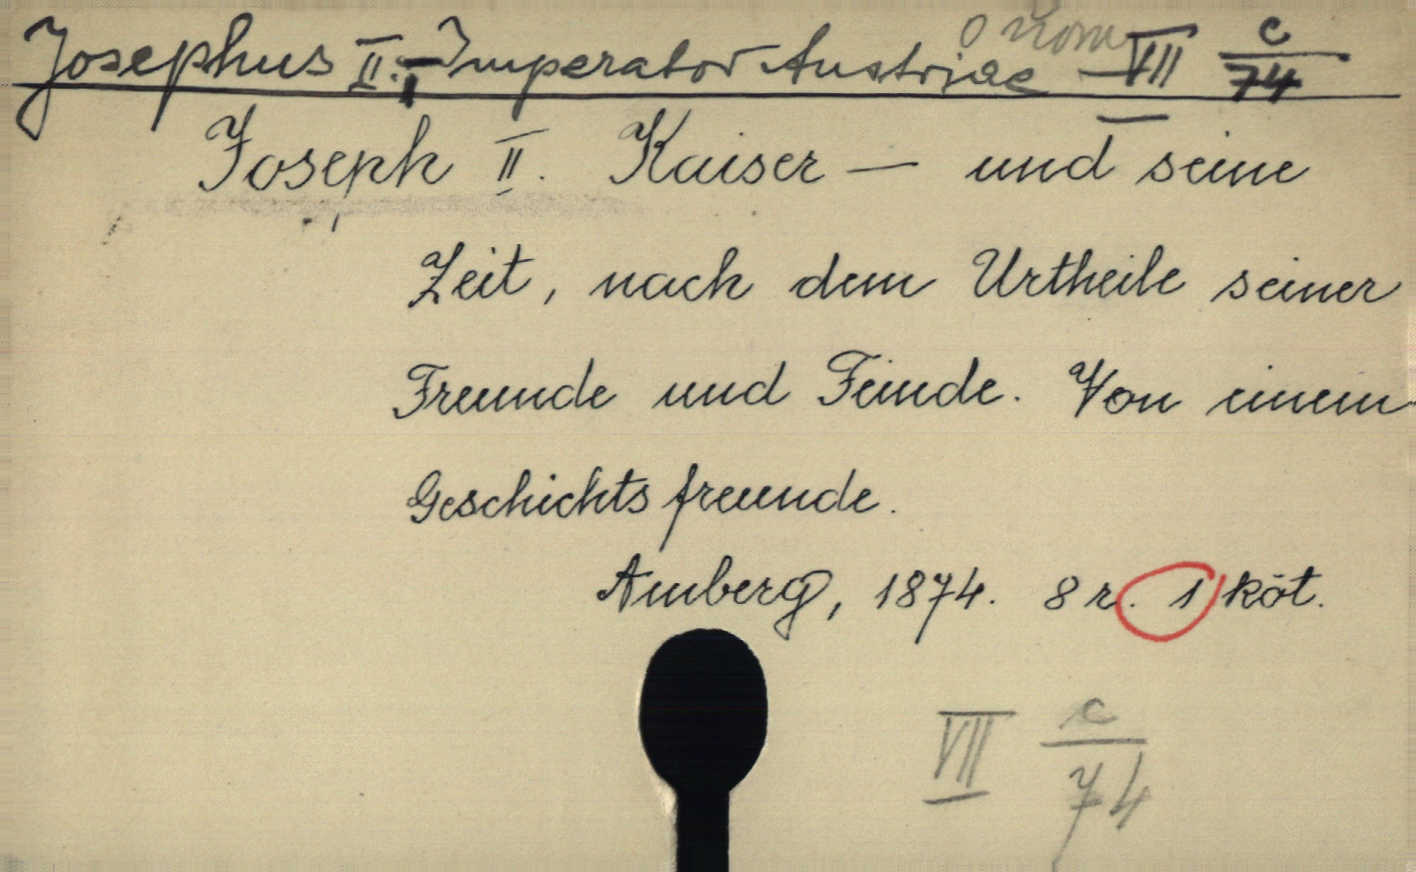 Josephus II. Imperator Austriae VII c/74
Joseph II. Kaiser — und seine
Zeit, nach dem Urtheile seiner
Freunde und Feinde. Von einem
Geschichtsfreunde.
Amberg, 1874. 8 r. 1 köt.
VII c/74